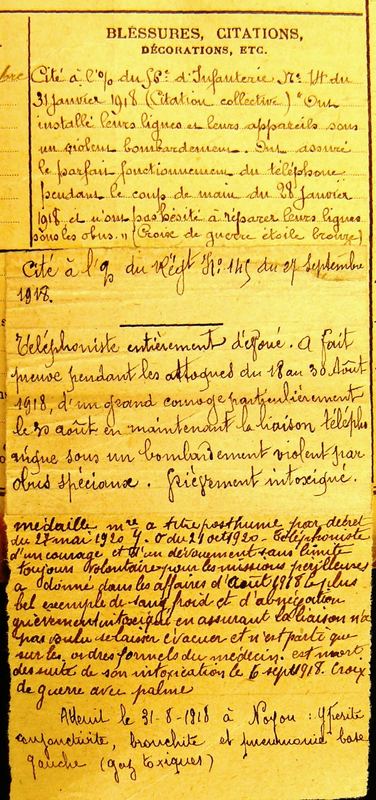 BLESSURES, CITATIONS,
DÉCORATIONS, ETC.
Cité à l'o/o du 56e d'Infanterie No 14 du
31 janvier 1918 (Citation collective) "Ont
installé leurs lignes et leurs appareils sous
un violent bombardement. Ont assuré
le parfait fonctionnement du téléphone
pendant le coup de main du 28 janvier
1918 et n'ont pas hésité à réparer leurs lignes
sous les obus." (Croix de guerre étoile bronze)
Cité à l'o/ du Régt No 145 du 27 Septembre
1918.
Téléphoniste entièrement dévoué. A fait
preuve pendant les attaques du 18 au 30 Août
1918, d'un grand courage particulièrement
le 30 août en maintenant la liaison télépho
nique sous un bombardement violent par
obus spéciaux. Grièvement intoxiqué.
médaille mre a titre posthume par décret
du 27 mai 1920 J. O du 21 oct 1920 - Téléphoniste
d'un courage et d'un dévouement sans limite
toujours volontaire pour les missions périlleuses
a donné dans les affaires d'Août 1918 le plus
bel exemple de sang froid et d'abnégation
grièvement intoxiqué en assurant la liaison n'a
pas voulu se laisser évacuer et n'est parti que
sur les ordres formels du médecin. est mort
des suite de son intoxication le 6 sept 1918. Croix
de guerre avec palme
Atteint le 31-8-1918 à Noyon : Ypérite
conjonctivite, bronchite et pneumonie base
gauche (gaz toxiques)